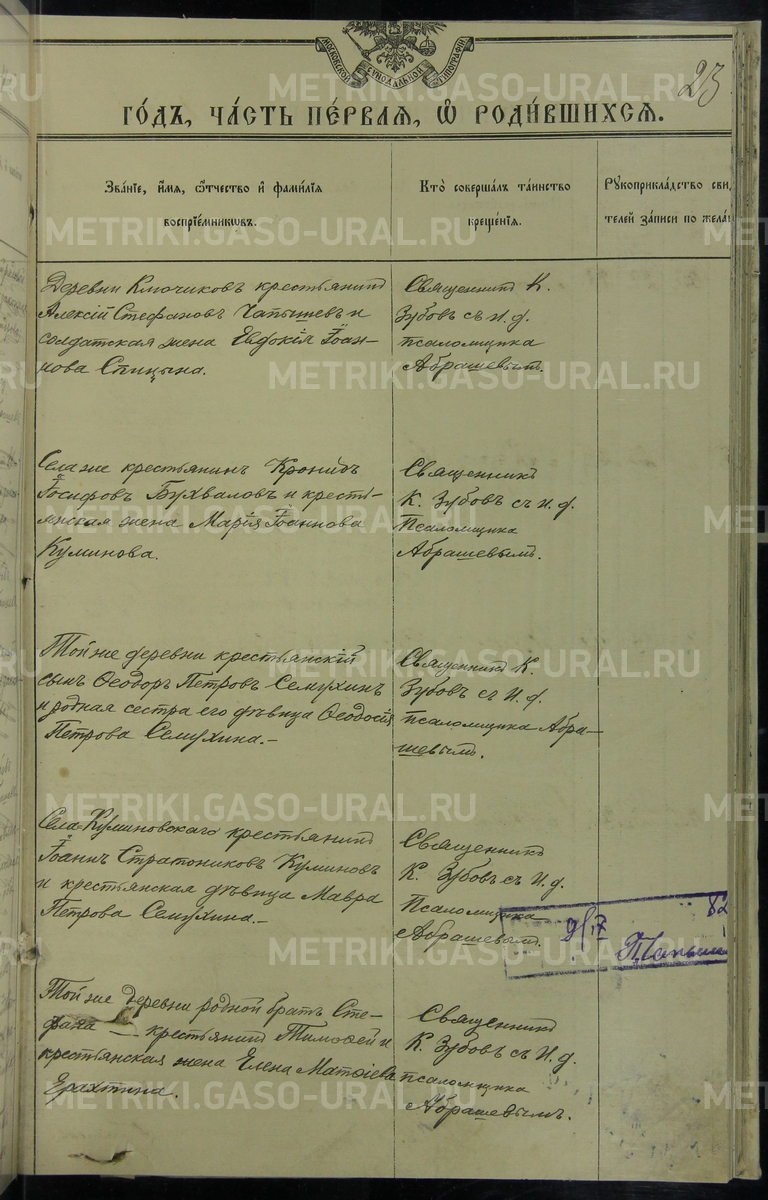 МОСКОВСКОЙ СѴНОДАЛЬНОЙ ТИПОГРАФІИ
23
ГО́ДЪ, ЧА́СТЬ ПЕ́РВАЯ, Ѡ҆ РОДИ́ВШИХСЯ.
Зва́нїе, и҆́мѧ, ѻ҆́тчество и҆ фами́лїѧ
воспрїе́мниковъ.
Кто̀ соверша́лъ та́инство
креще́нїѧ.
Рꙋкоприкла́дство сви
телей за́писи по жела
Деревни Ключиковъ крестьянинъ
Алексій Стефановъ Чапышевъ и
солдатская жена Евдокія Іоан-
нова Спицына.
Священникъ К.
Зубовъ съ и. д.
псаломщика
Абрашевымъ.
Села же крестьянинъ Кронидъ
Іосифовъ Бухваловъ и кресть-
янская жена Марія Іоаннова
Куминова.
Священникъ
К. Зубовъ съ и. д.
Псаломщика
Абрашевымъ.
Той же деревни крестьянскій
сынъ Ѳеодоръ Петровъ Семухинъ
и родная сестра его дѣвица Ѳеодосія
Петрова Семухина.-
Священникъ К.
Зубовъ съ И. д.
псаломщика Абра-
шевымъ.
Села Куминовскаго крестьянинъ
Іоаннъ Стратониковъ Куминовъ
и крестьянская дѣвица Мавра
Петрова Семухина.-
Священникъ
К. Зубовъ съ И. д.
Псаломщика
Абрашевымъ.
82
Той же деревни родной братъ Сте-
фана — крестьянинъ Тимоѳей и
крестьянская жена Елена Матѳіева
Ерахтина.
Священникъ
К. Зубовъ съ И. д.
псаломщика
Абрашевымъ.
METRIKI.GASO-URAL.RU